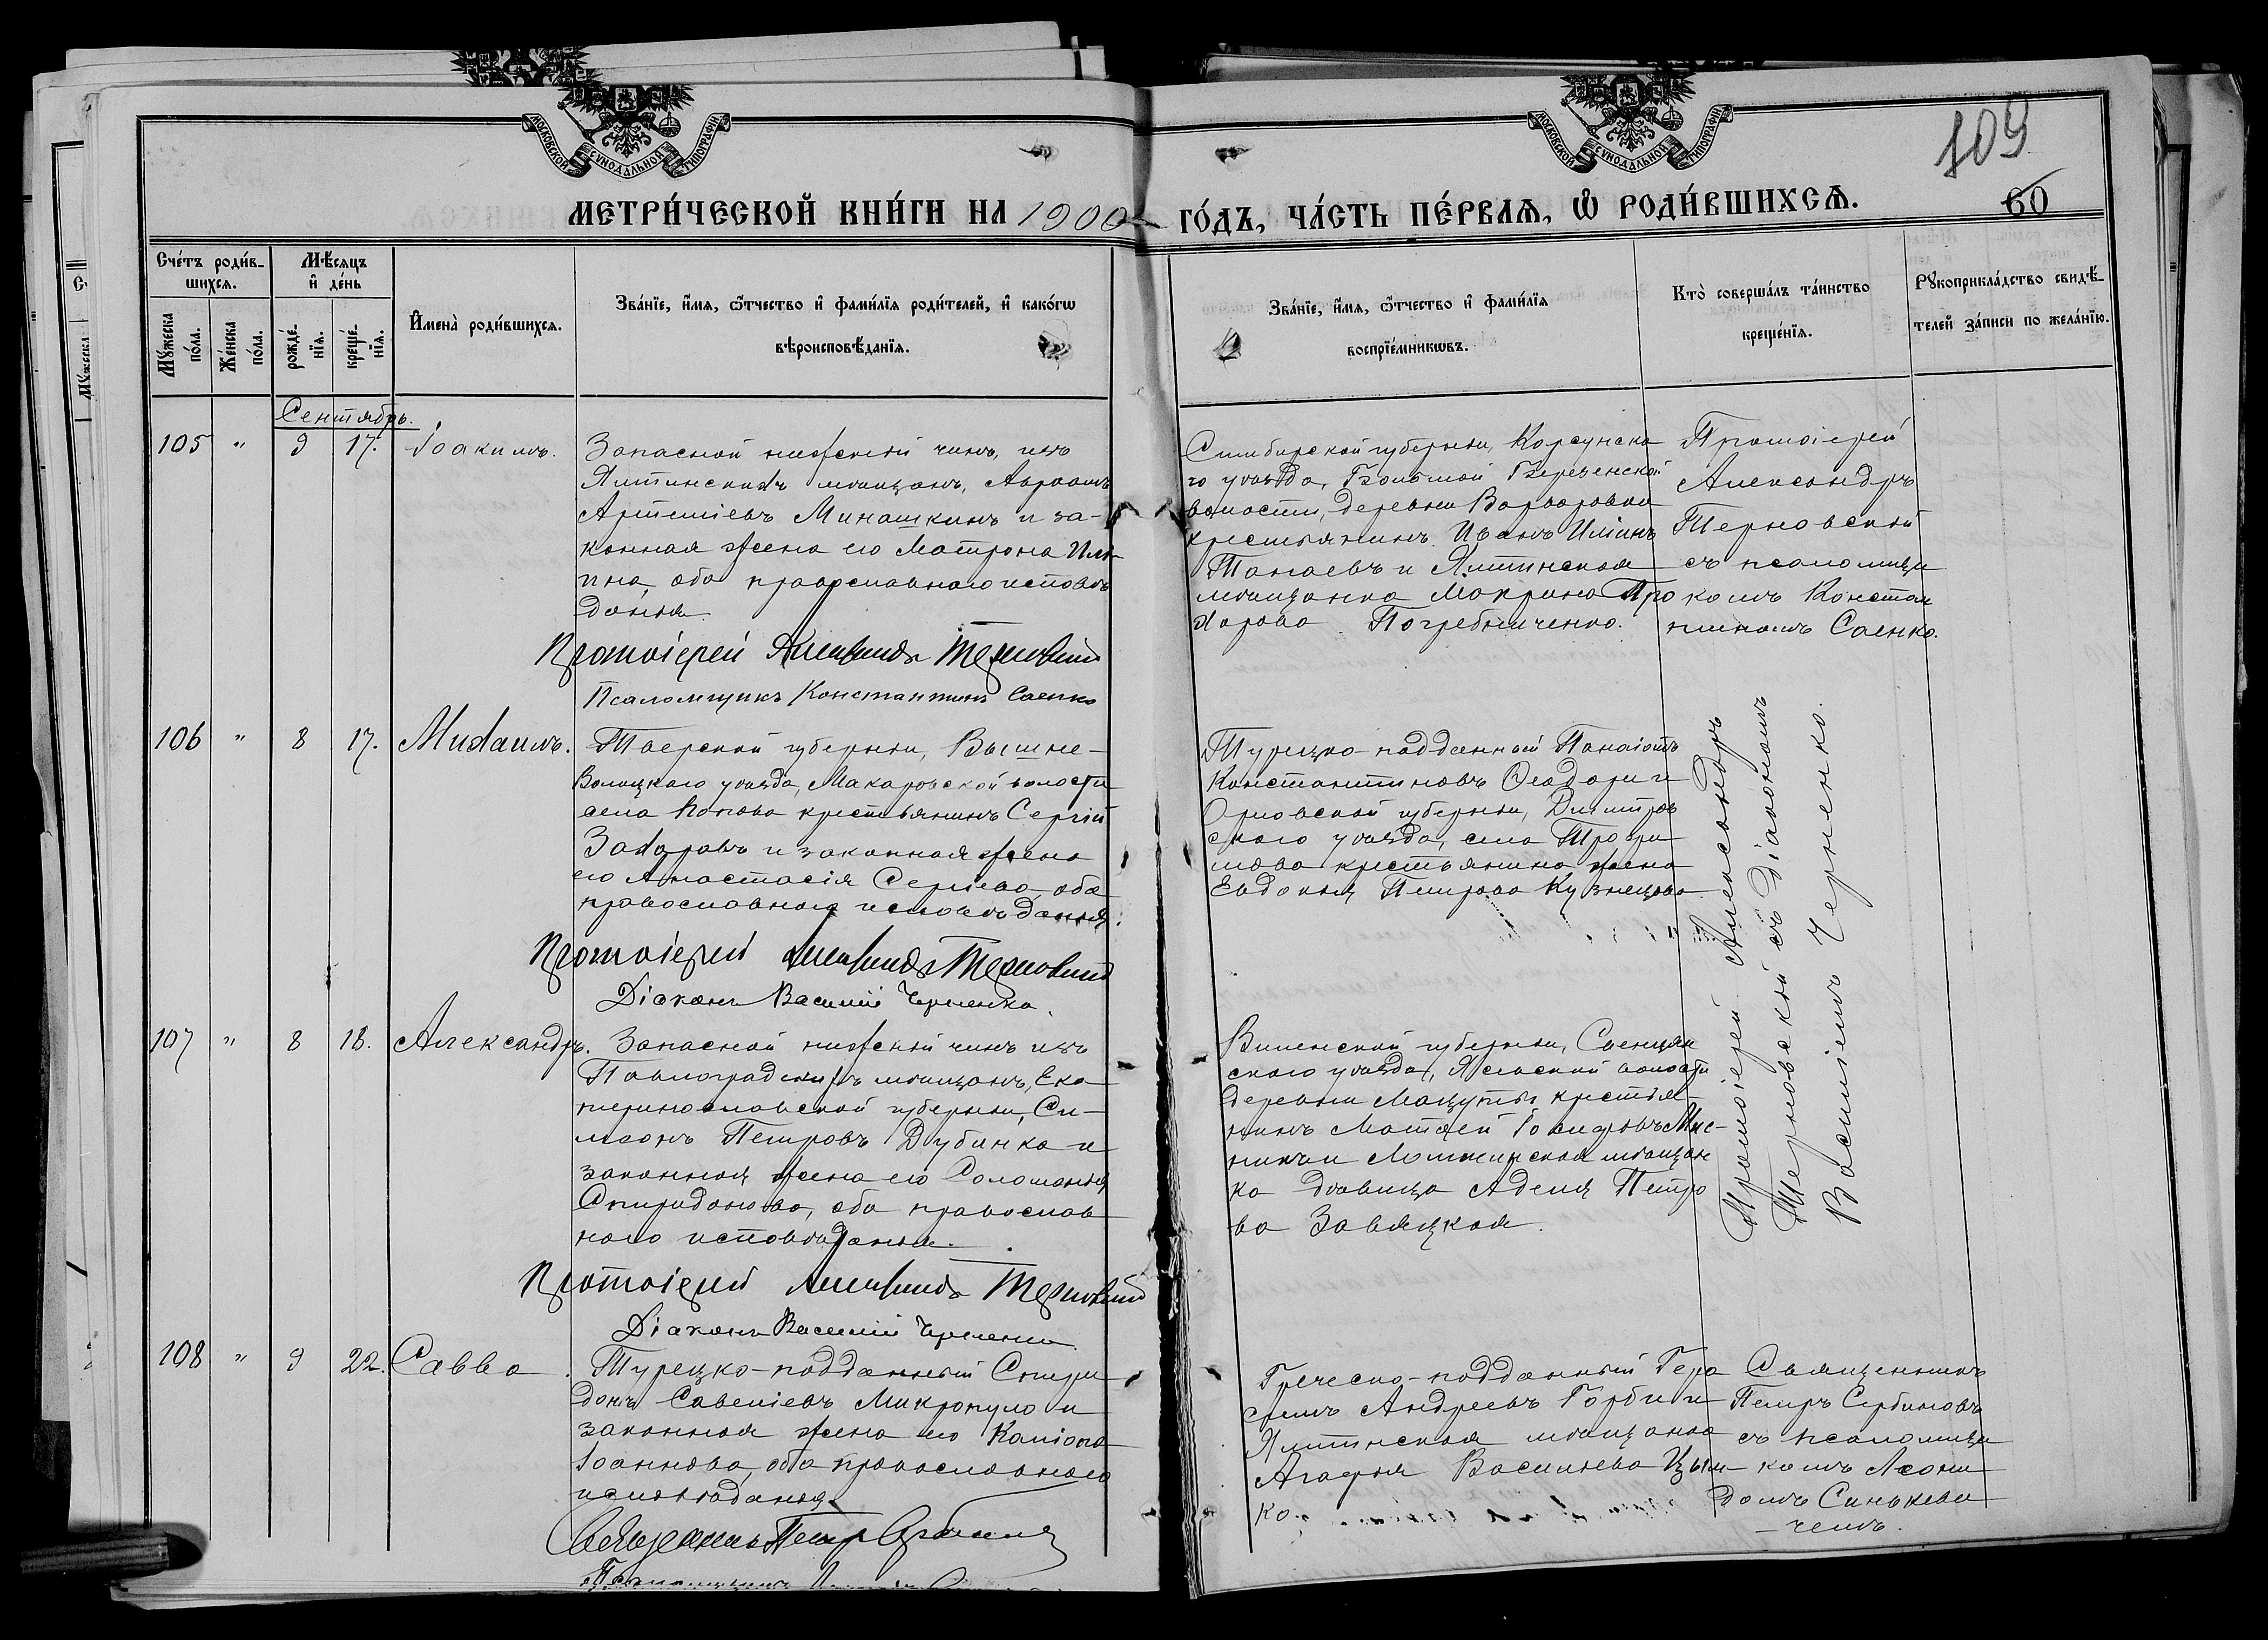 МОСКОВСКОЙ СѴНОДАЛЬНОЙ ТИПОГРАФІИ
МОСКОВСКОЙ СѴНОДАЛЬНОЙ ТИПОГРАФІИ
109
60
МЕТРИ́ЧЕСКОЙ КНИ́ГИ НА 1900
ГО́ДЪ, ЧА́СТЬ ПЕ́РВАѦ, Ѡ РОДИ́ВШИХСѦ.
Сче́тъ роди́в-
шихсѧ.
Мꙋжеска по́ла.
Же́нска по́ла.
Мѣ́сѧцъ
и҆ де́нь
рожде́-
нїѧ.
креще́-
нїѧ.
И҆мена̀ роди́вшихсѧ.
Зва́нїе, и҆́мѧ, ѻ҆́тчество и҆ фами́лїѧ роди́телей, и҆ како́гѡ
вѣроисповѣ́данїѧ.
Зва́нїе, и҆́мѧ, ѻ҆́тчество и҆ фами́лїѧ
воспрїе́мникѡвъ.
Кто̀ соверша́лъ та́инство
креще́нїѧ.
Рꙋкоприкла́дство свидѣ́-
телей за́писи по жела́нїю.
Сентябрь.
105 " 9 17. Іоакимъ.
Запасной нижній чинъ, изъ
Ялтинскихъ мѣщанъ, Авраамъ
Артеміевъ Минашкинъ и за-
конная жена его Матрона Иль-
ина, оба православнаго исповѣ
данія.
Протоіерей Александръ Терновскій
Псаломщикъ Константинъ Саенко
Симбирской губерніи, Корсунска
го уѣзда, Большой Березенской
волости, деревни Варваровки
крестьянинъ Иванъ Ильинъ
Танаевъ и Ялтинская
мѣщанка Макрина Про
хорова Погребниченко.
Протоіерей
Александръ
Терновскій
съ псаломщи
комъ Констан
тиномъ Саенко.
106 " 8 17. Михаилъ.
Тверской губерніи, Вышне-
Волоцкаго уѣзда, Макаровской волости
села Попова крестьянинъ Сергій
Захаровъ и законная жена
его Анастасія Сергіева, оба
православнаго исповѣданія.
Протоіерей Александръ Терновскій
Діаконъ Василій Черненко.
Турецко-подданный Панаіотъ
Константиновъ Ѳеодори и
Орловской губерніи, Дмитров
скаго уѣзда, села Трофи
мова крестьянина жена
Евдокія Петрова Кузнецова
Протоіерей Александръ
Терновскій съ Діакономъ
Василіемъ Черненко.
107 " 8 18. Александръ.
Запасной нижній чинъ изъ
Павлоградскихъ мѣщанъ, Ека
теринославской губерніи, Си-
меонъ Петровъ Дубинка и
законная жена его Соломонія
Спиридонова, оба православ
наго исповѣданія.
Протоіерей Александръ Терновскій
Діаконъ Василій Черненко
Виленской губерніи, Свенцян
скаго уѣзда, волости
деревни Мацуты крестья-
нинъ Матѳей
и мѣщан
ка дѣвица Аделя Петро
ва Завяцкая.
108 " 9 22. Савва.
Турецко-подданный Спири
донъ Савеліевъ Микропуло и
законная жена его Каліопа
Іоаннова, оба православнаго
исповѣданія.
Священникъ Петръ Сербиновъ
Греческо-подданный Гера
симъ Андреевъ Горби и
Ялтинская мѣщанка
Агафія Васильева Цым-
ко.
Священникъ
Петръ Сербиновъ
съ псаломщи
комъ Леони
домъ Синькеви
чемъ.